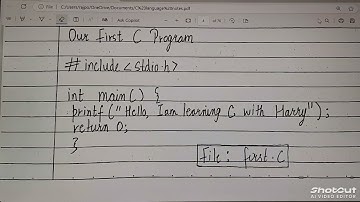 C:/Users/rajas/OneDrive/Documents/C%20language%20notes.pdf
Our First C Program
# include <stdio·h>
int main() {
printf ("Hello, I am learning C with Harry");
return 0;
}
File: first·C
ShotCut
AI VIDEO EDITOR